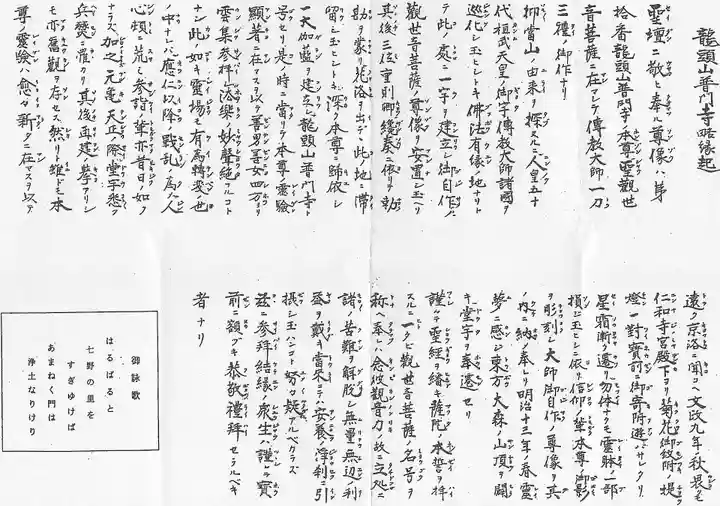 龍頭山普門寺略縁起
聖壇ニ敬ヒ奉ル尊像ハ第
拾番龍頭山普門寺本尊聖觀世
音菩薩ニ在マシテ傳教大師一刀
三禮ノ御作ナリ
抑當山ノ由来ヲ探スルニ人皇五十
代祖武天皇ノ御宇傳教大師諸國ヲ
巡化シ玉ヒシトキ佛法有縁ノ地ナリト
テ此ノ處ニ一宇ヲ建立シ御自作ノ
觀世音菩薩ノ尊像ヲ安置シ玉ヘリ
其後三位重則綾奏ニ依リテ勅
助ヲ蒙リ花洛ヲ出デ此ノ地ニ滞
留シ玉ヒシトキ深ク本尊ニ歸依シ
一大伽藍ヲ建立シ龍頭山普門寺ト
号セリ是ノ時ニ當リテ本尊ノ霊驗
顯著ニ在マスヲ以テ善男善女四方ヨリ
雲集参拝シ法樂ノ妙聲絶ヘルコト
ナシ此ノ如キ霊場モ有為轉変ノ世
ノ中ナレバ應仁以降戰乱ノ為メ人
心頗ル荒ミ参詣ノ輩亦昔日ノ如ク
ナラズ加之元亀天正ノ際堂宇悉ク
兵燹ニ罹クリ其後再建ノ挙アリシ
モ亦舊觀ヲ存セス然リト雖ドモ本
尊ノ霊驗ハ愈々新タニ在マスヲ以テ
遠ク京洛ニ聞コヘ文政九年ノ秋畏モ
仁和寺宮殿下ヨリ菊花御紋附ノ提
燈一對寳前ニ御寄附遊ハサレタリ
星霜漸ク遷リ勿体ナクモ霊躰ノ一部
損ジ玉ヒシニ依テ信仰ノ輩本尊ノ御影
ヲ彫刻シ大師御自作ノ尊像ヲ其ノ
内ニ納メ奉レリ明治十三年ノ春霊
夢ニ感シ東方大森ノ山頂ヲ開
キ堂宇ヲ奉遷セリ
謹デ聖経ヲ繙キ薩陀ノ本誓ヲ拝
スルニ一タビ觀世音菩薩ノ名号ヲ
称ヘ奉レハ念彼觀音力ノ故ニ立処ニ
諸ノ苦難ヲ解脱シ無量無辺ノ利
益ヲ戴キ當来ニテハ安養浄刹ニ引
摂シ玉ハンコト努々疑アルベカラズ
茲ニ参拝結縁ノ衆生ハ謹シテ寳
前ニ額ヅキ恭敬禮拜セラルベキ
者ナリ
御詠歌
はるばると
七野の里を
すぎゆけば
あまねく門は
浄土なりけり